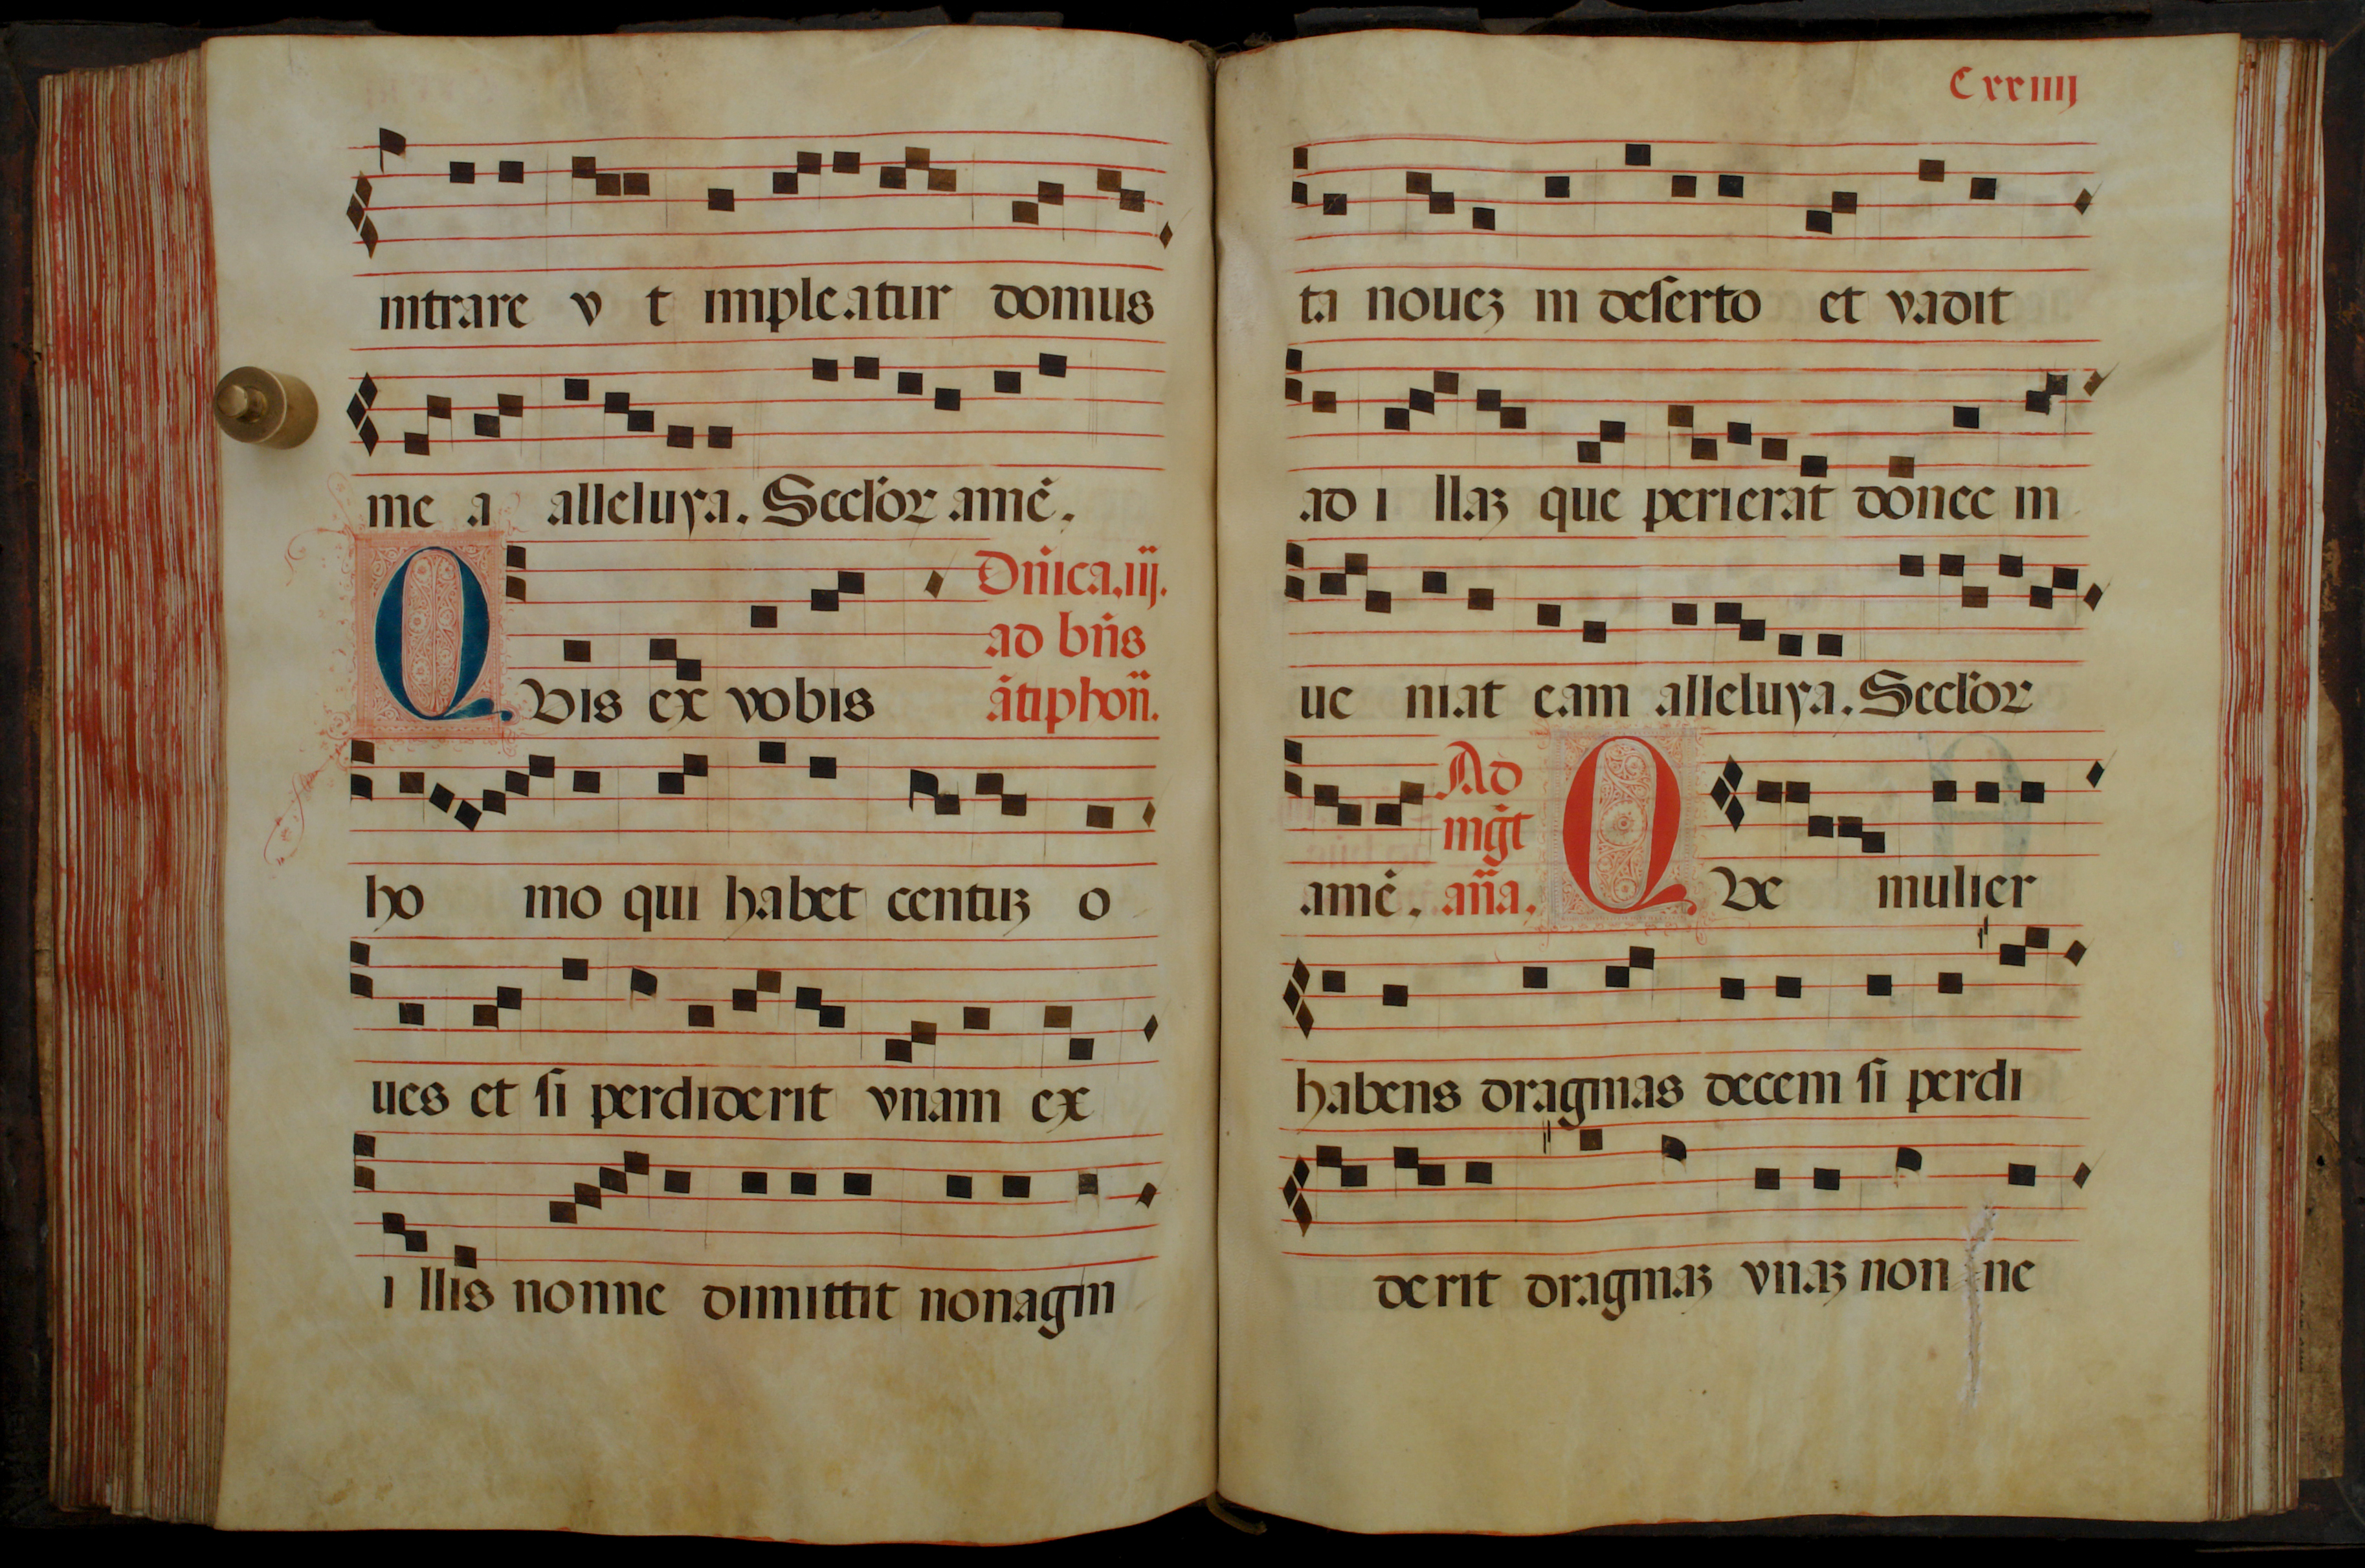 intrare v t impleatur domus
me a alleluya. Seclor amē.
Dn̄ica.iij.
ad bn̄s
Q Vis ex vobis
ātiphon̄.
ho mo qui habet centuꝫ o
ues et si perdiderit vnam ex
i llis nonne dimittit nonagin
Cxxiiij
ta noueꝫ in deserto et vadit
ad i llaꝫ que perierat donec in
ue niat eam alleluya. Seclor
Ad
mḡt
amē. an̄a. Q Ve mulier
habens dragmas decem si perdi
derit dragmaꝫ vnaꝫ non ne